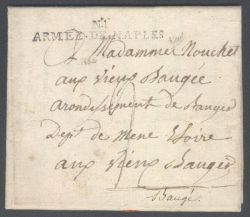 N.1
ARMÉE-DE-NAPLES
A Madamme Nouchet
aux vieux Baugée
arondissement de Baugé
Dept de Mene Loire
aux vieux Baugé
Baugé